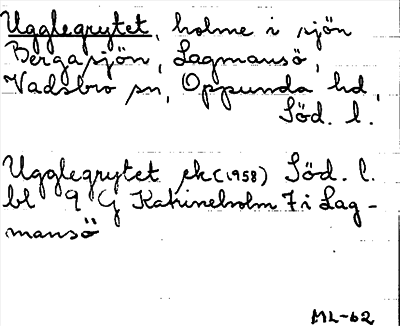 Ugglegrytet, holme i sjön
Bergasjön, Lagmansö,
Vadsbro sn, Oppunda hd,
Söd. l.
Ugglegrytet ek (1958) Söd. l.
bl 9 G Katrineholm 7 i Lag-
mansö
ML-62